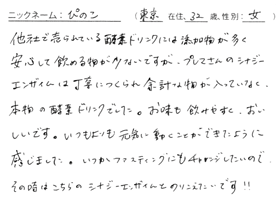 ニックネーム:ぴのこ (東京 在住、32 歳、性別:女)
他社で売られている酵素ドリンクには添加物が多く
安心して飲める物が少ないですが、プレマさんのシナジー
エンザイムは丁寧につくられ余計な物が入っていなく、
本物の酵素ドリンクでした。お味も飲みやすく、おい
しいです。いつもよりも元気に動くことができたように
感じました。いつかファスティングにもチャレンジしたいので、
その時はこちらのシナジーエンザイムとのりこえたいです!!